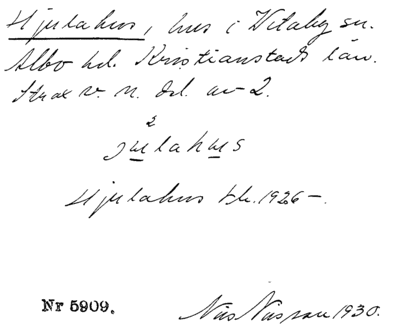 Hjulahus, hus i Vitaby sn.
Albo hd. Kristianstads län.
Strax v. n. del. av 2.
2
julahus
Hjulahus tk. 1926-.
Nr 5909.
Nils 1930.